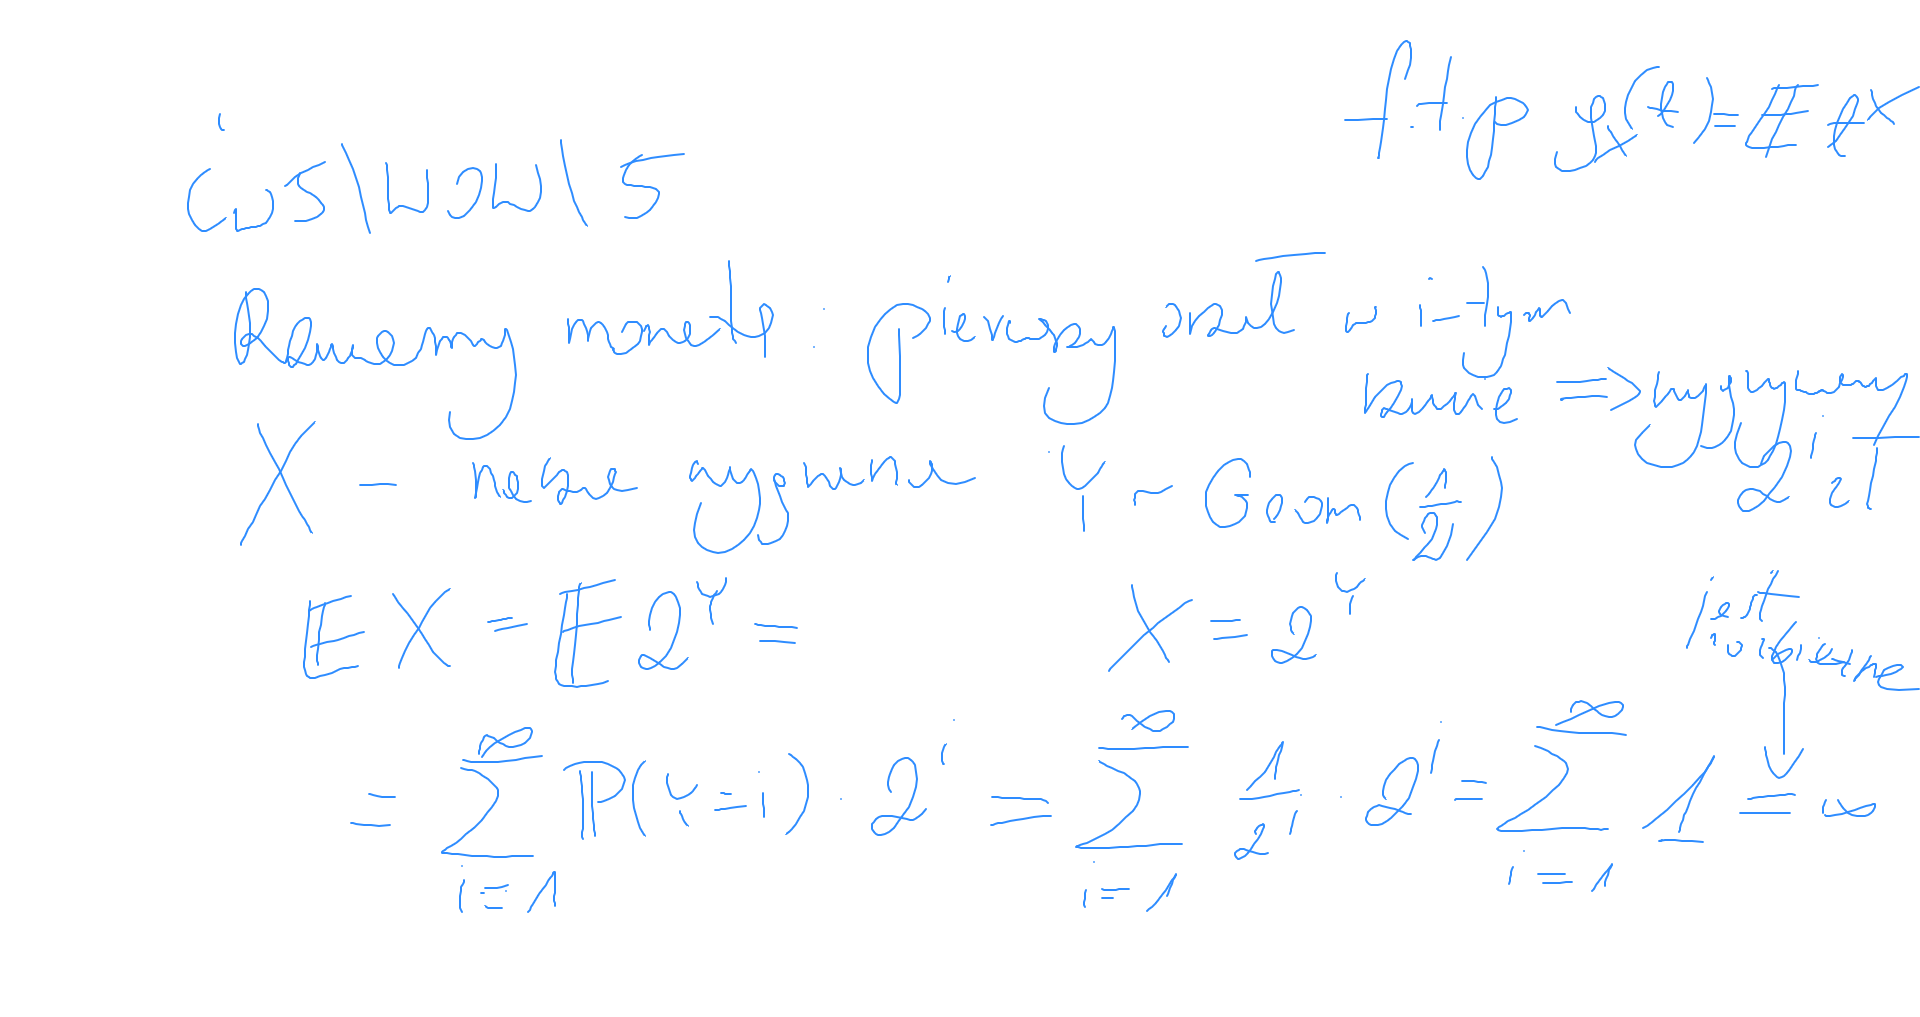 f.t.p g_x(t) = 𝔼 t^X
ćw5\WDW\5
Rzucamy monetą: pierwszy orzeł w i-tym
rzucie ⇒ wygrywamy
2^i zł
X – nasza wygrana Y ~ Geom(1/2)
𝔼X = 𝔼2^Y = X = 2^Y
jest
rozbieżne
= ∑_{i=1}^{∞} ℙ(Y=i) · 2^i = ∑_{i=1}^{∞} 1/2^i · 2^i = ∑_{i=1}^{∞} 1 = ∞